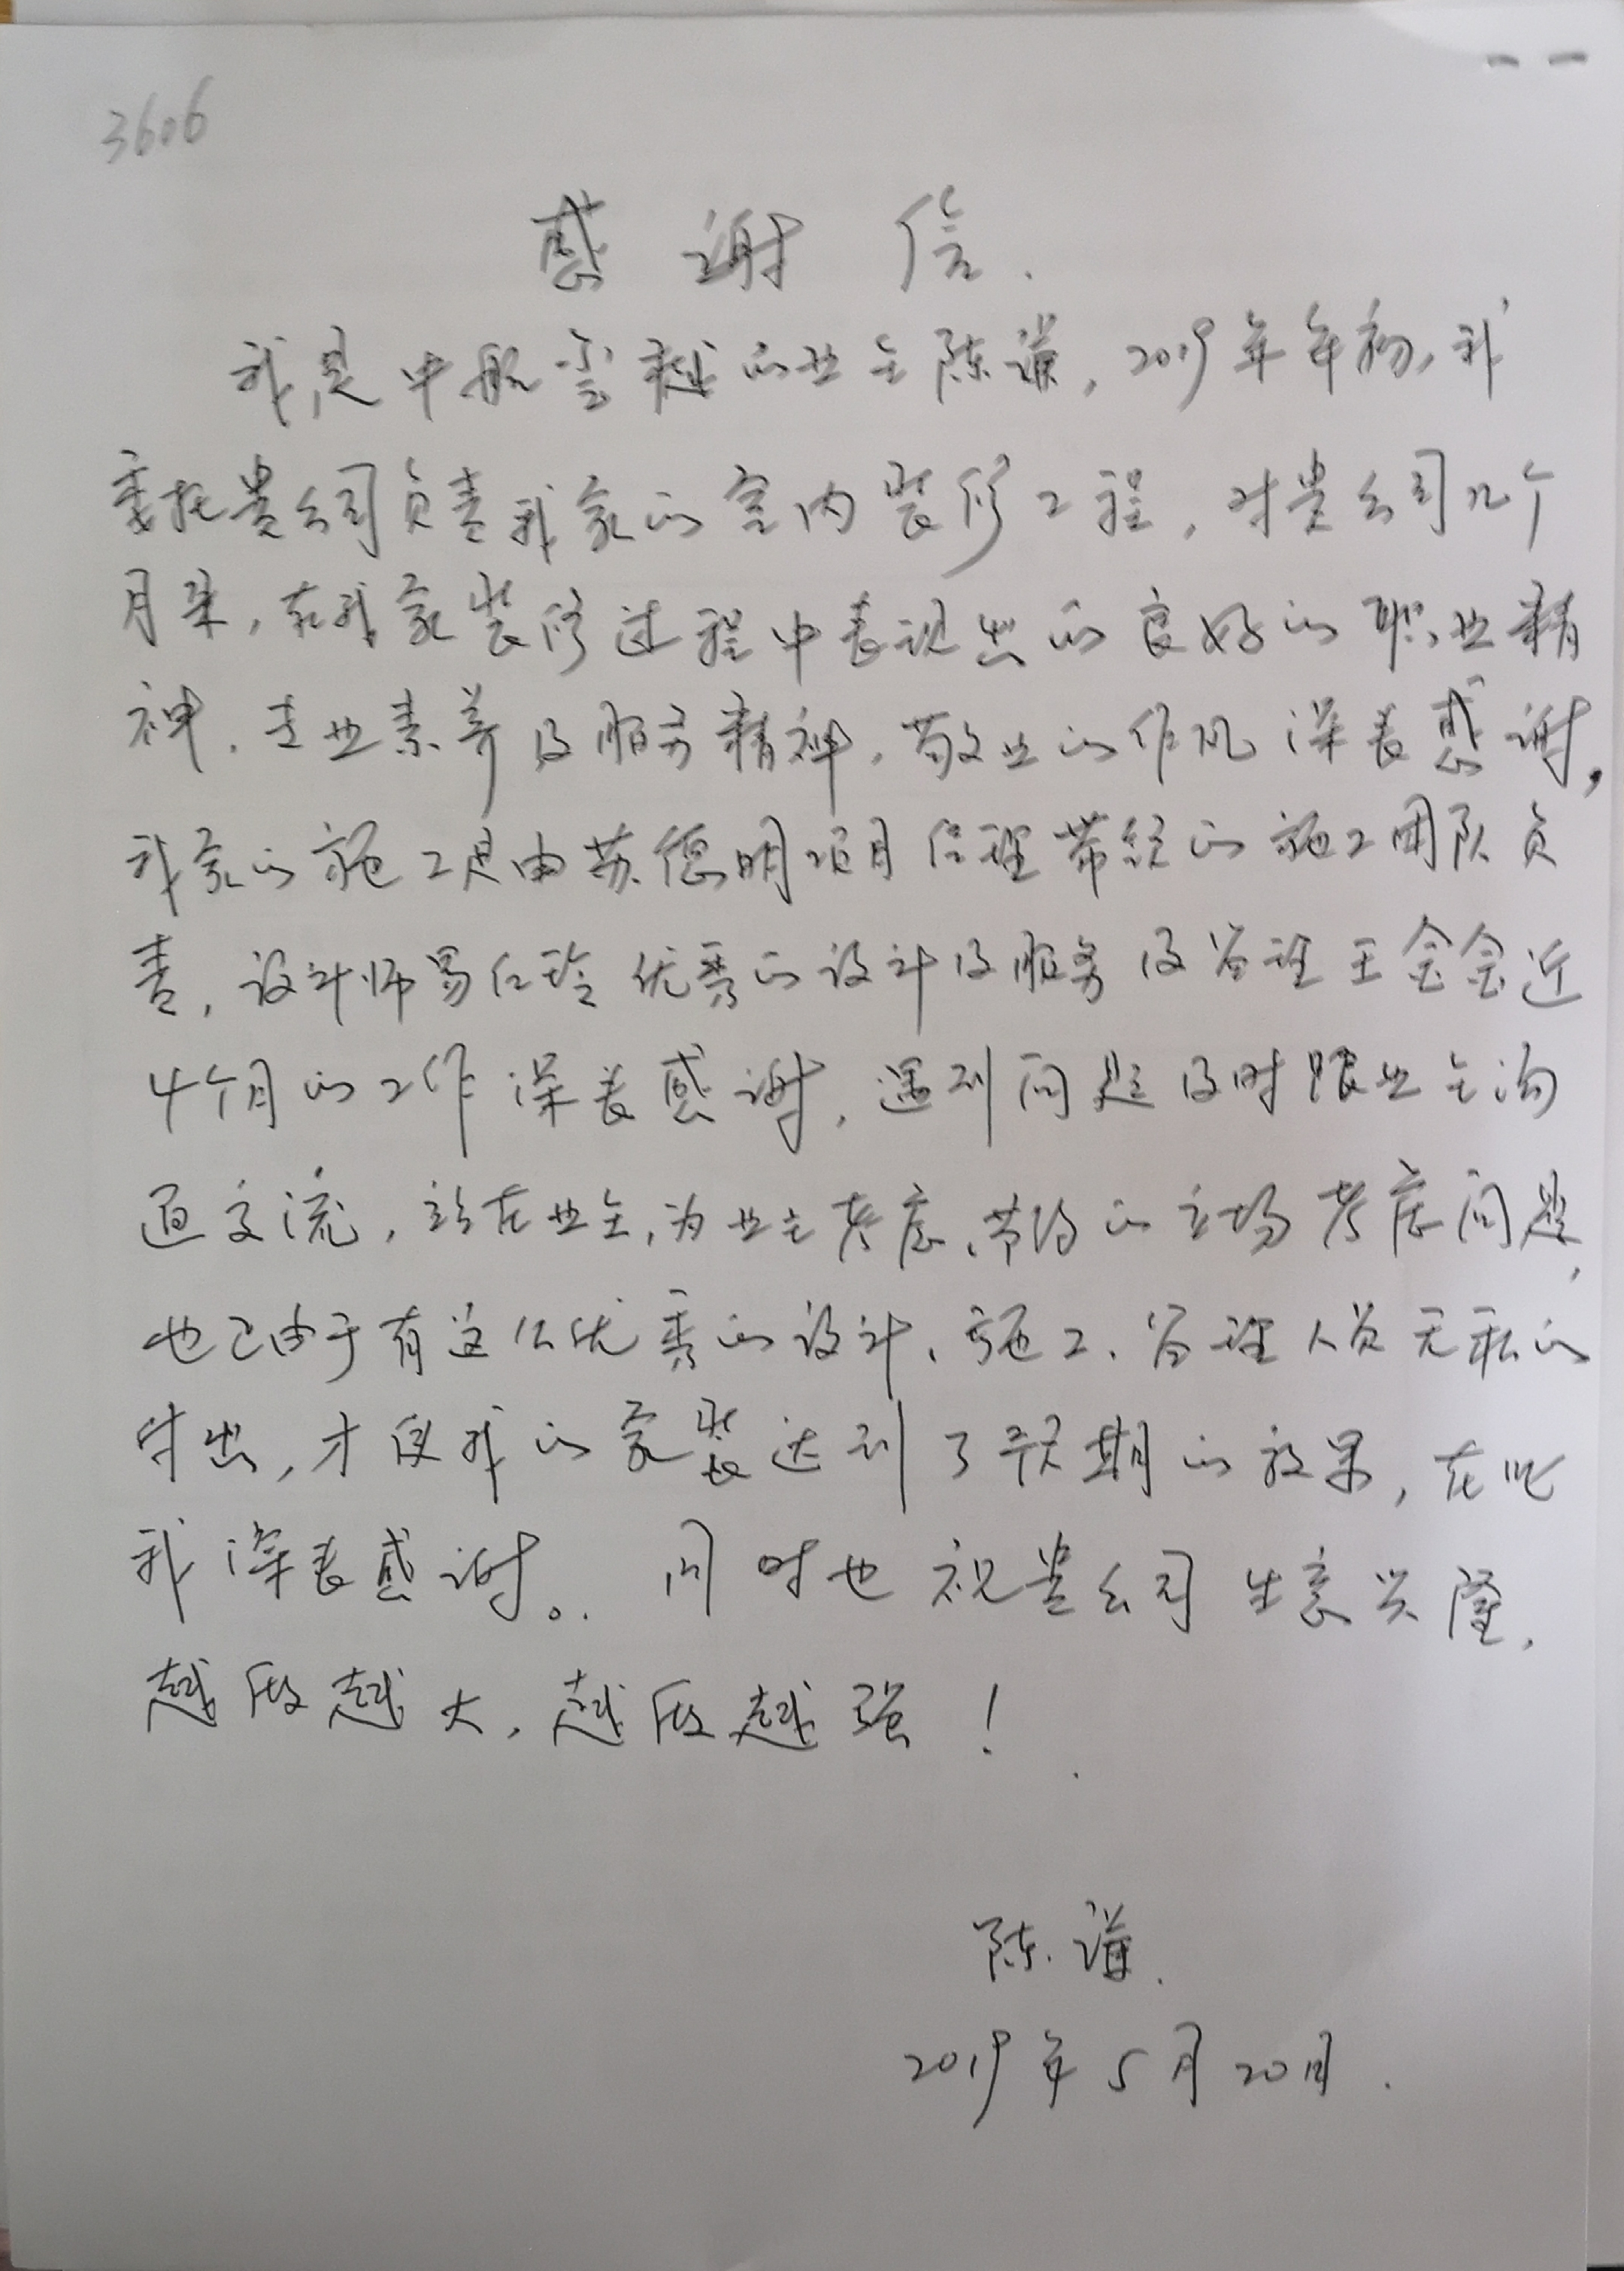 3606
感谢信.
我是中船云越的业主陈谦,2019年年初,我
委托贵公司负责我家的室内装修工程,对贵公司几个
月来,在我家装修过程中表现出的良好的职业精
神.专业素养及服务精神,敬业的作风深表感谢,
我家的施工是由苏德明项目经理带领的施工团队负
责,设计师易红玲优秀的设计及服务及管理王会会近
4个月的工作深表感谢,遇到问题及时跟业主沟
通交流,站在业主,为业主考虑、节约的立场考虑问题,
也正由于有这么优秀的设计、施工、管理人员无私的
付出,才使我的家装达到了预期的效果,在此
我深表感谢。同时也祝贵公司生意兴隆,
越做越大,越做越强!
陈谦.
2019年5月20日.